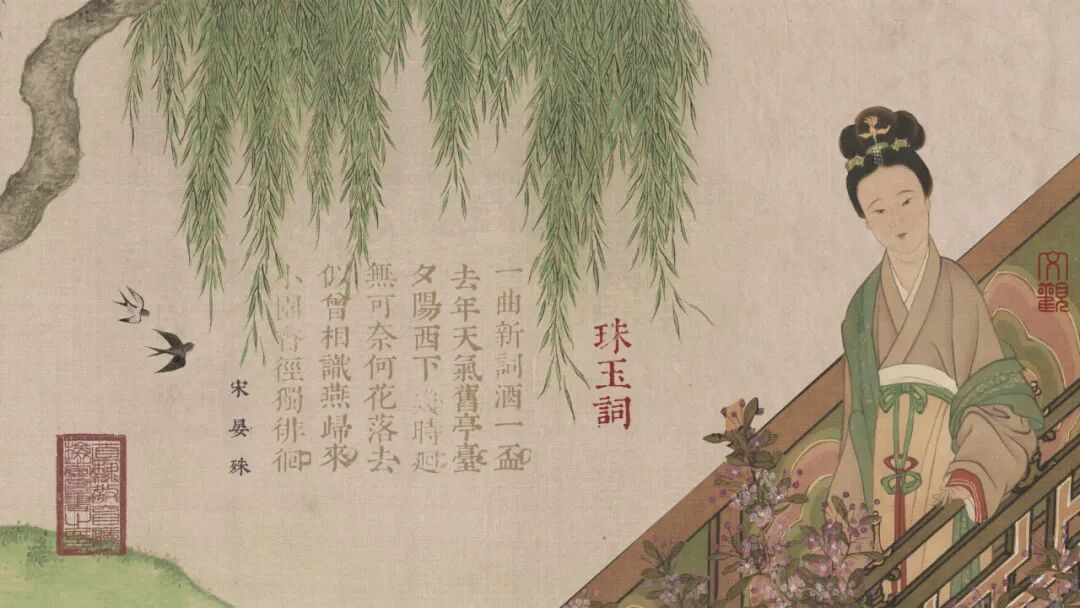 文觀
珠玉詞
一曲新詞酒一盃
去年天氣舊亭臺。
夕陽西下幾時廻。
無可奈何花落去。
似曾相識燕歸來。
小園香徑獨徘徊。
宋晏殊